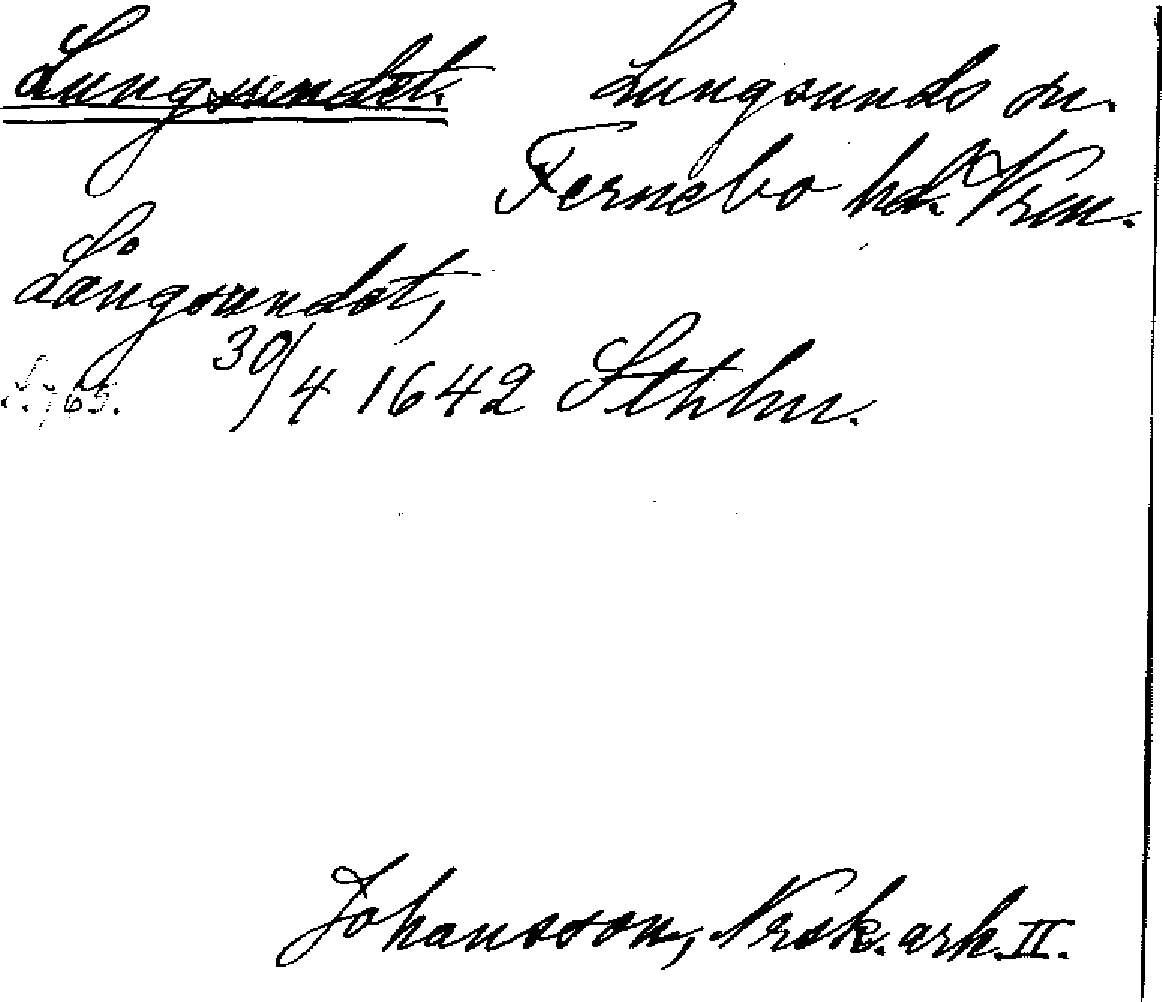 Lungsundet. Lungsunds sn.
Fernebo hd. Vrm.
Långsundet,
30/4 1642 Sthlm.
S. 765.
Johansson, Noresk. ark. II.